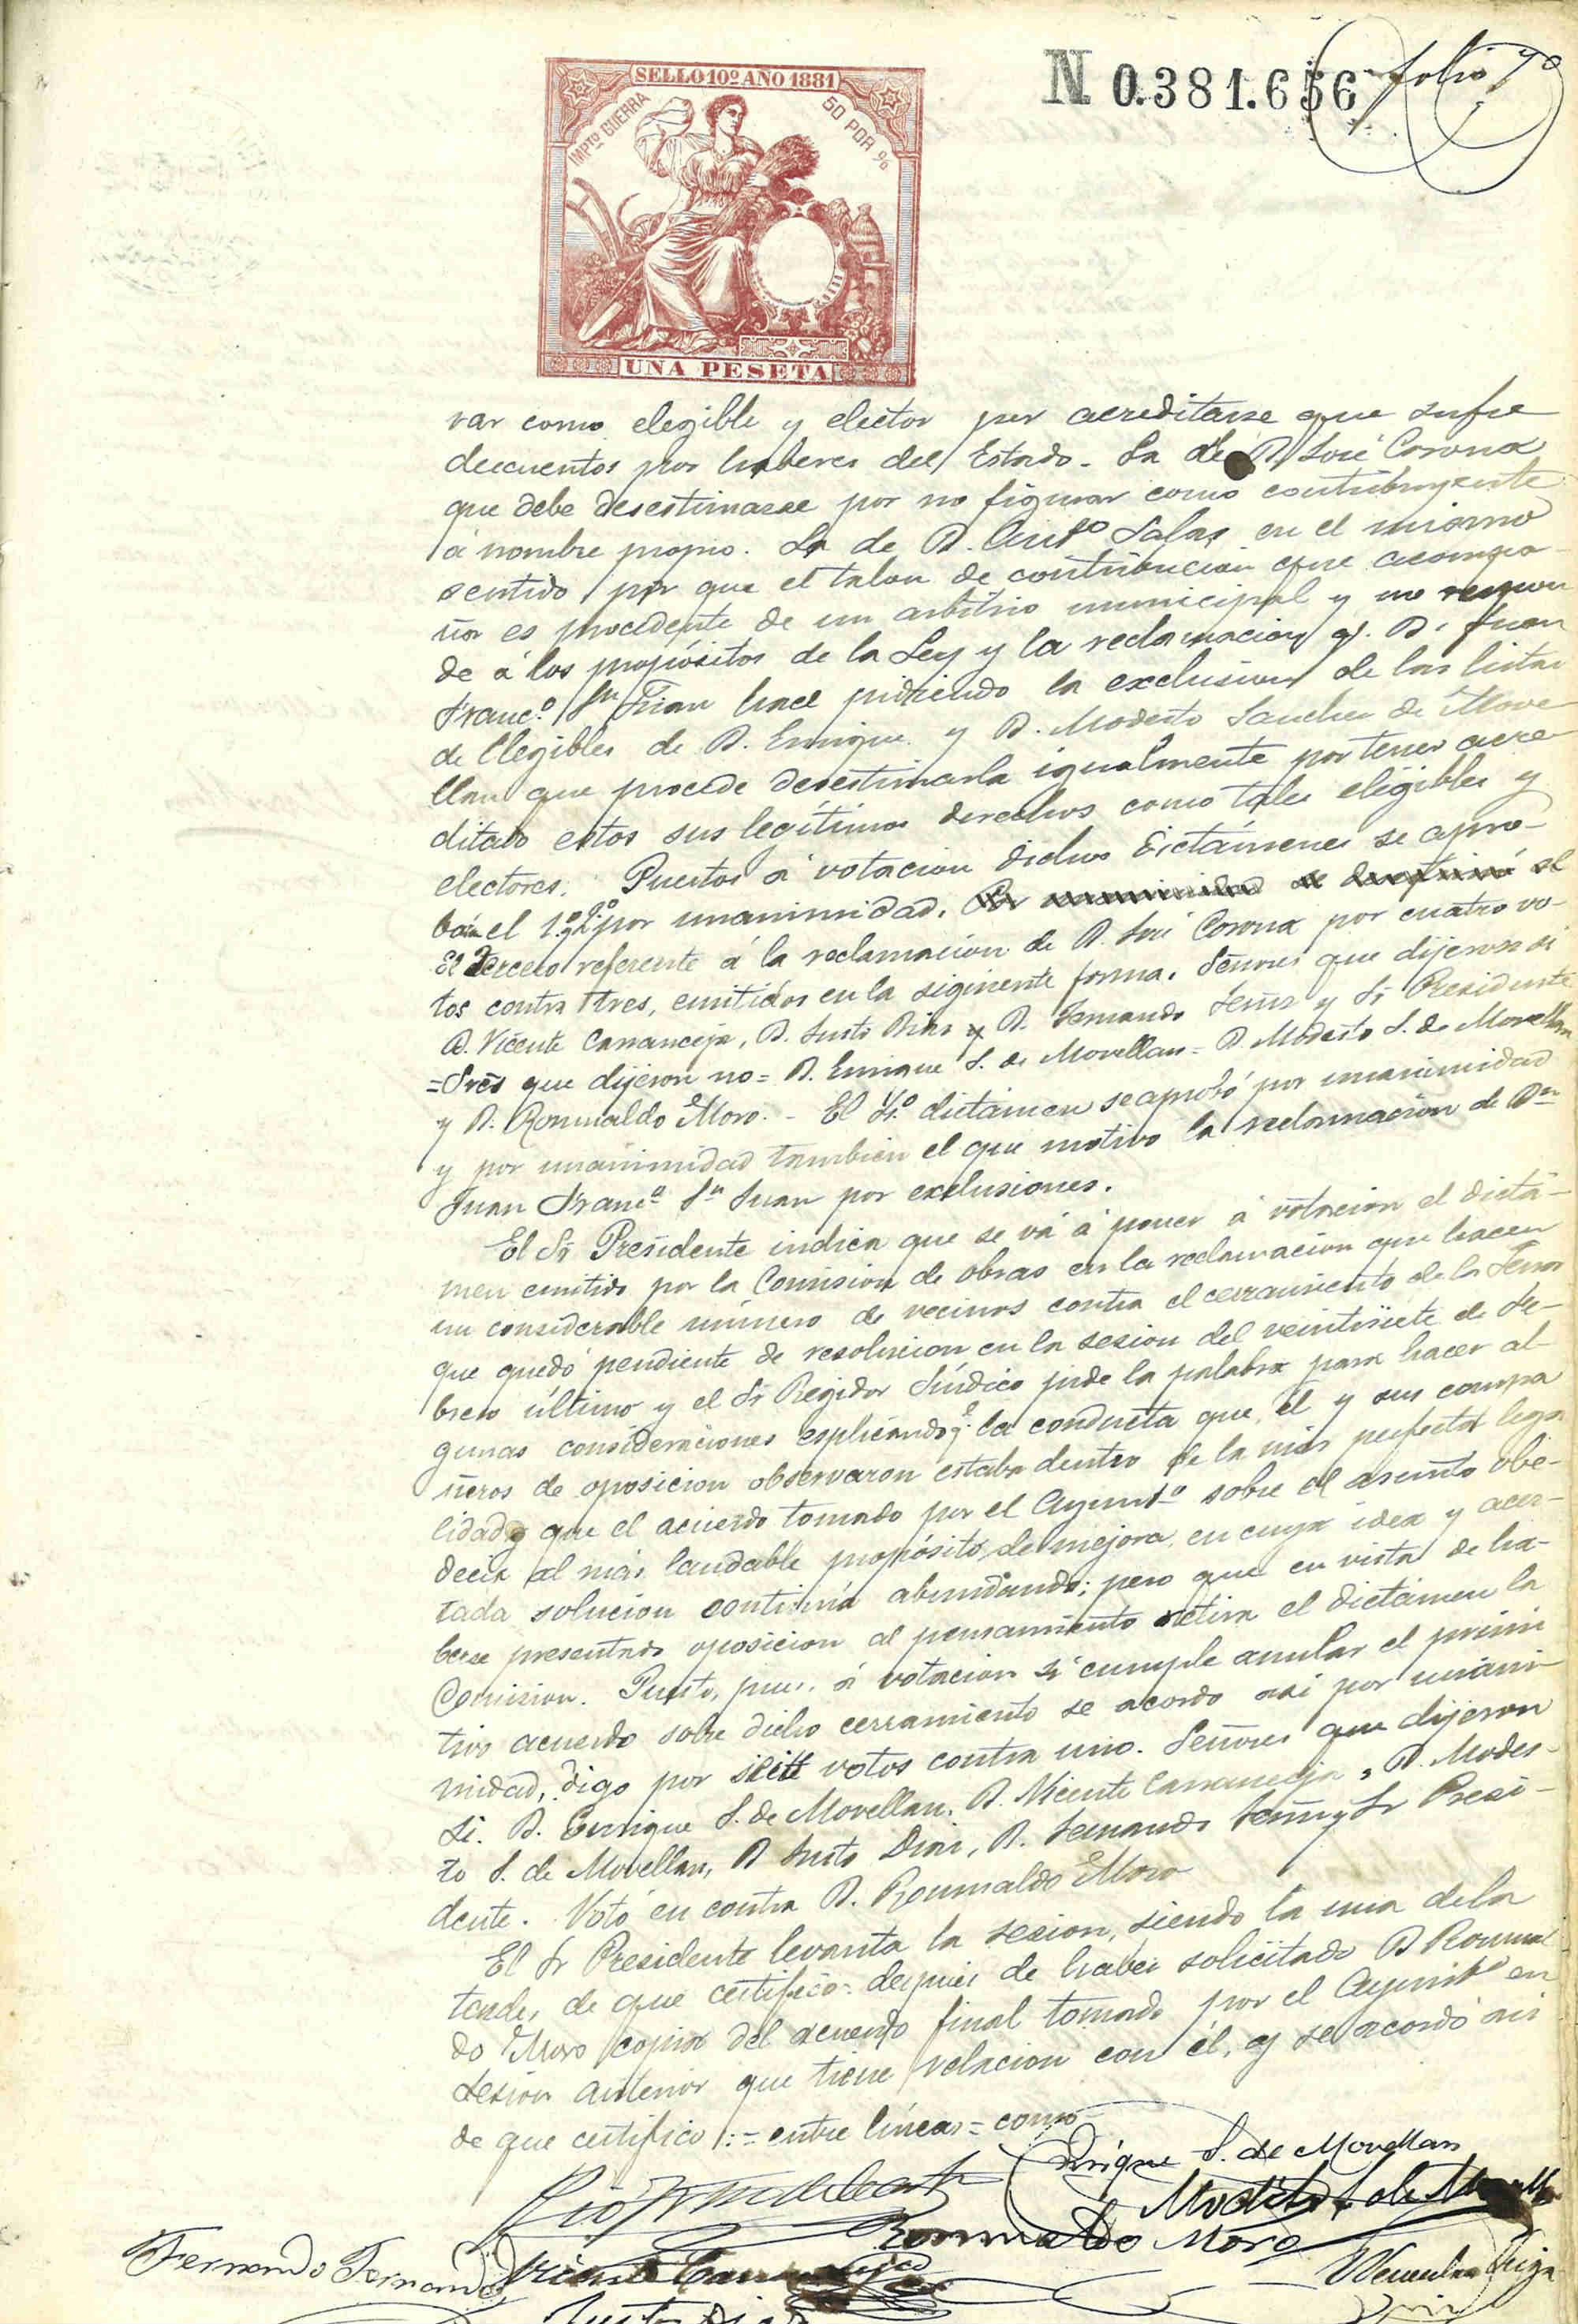 SELLO 10º AÑO 1881
IMPTO GUERRA
50 POR %
UNA PESETA
N 0.381.656
folio 7º
var como elegible y elector por acreditarse que sufre
descuentos por haberes del Estado. La de D. José Corona
que debe desestimarse por no figurar como contribuyente
á nombre propio. La de D. Antº Salas en el mismo
sentido por que el talon de contribucion que acompa-
ña es procedente de un arbitrio municipal y no respon
de á los propósitos de la Ley y la reclamacion q. D. Juan
Francº Sn Juan hace pidiendo la exclusion de las listas
de Elegibles de D. Enrique y D. Modesto Sanchez de Move-
llan que procede desestimarla igualmente por tener acre-
ditado estos sus legítimos derechos como tales elegibles y
electores. Puestos á votacion dichos dictámenes se apro-
el 1º y 2º por unanimidad.
El tercero referente á la reclamacion de D. José Corona por cuatro vo-
tos contra tres, emitidos en la siguiente forma. Señores que dijeron si
D. Vicente Carranceja, D. Justo Diaz y D. Fernando Fernz y Sr Presidente
=Sres que dijeron no= D. Enrique S. de Movellan= D. Modesto S. de Movellan
y D. Romualdo Moro. - El 4º dictamen se aprobó por unanimidad
y por unanimidad tambien el que motivó la reclamacion de Dn
Juan Francº Sn Juan por exclusiones.
El Sr Presidente indica que se vá á poner á votacion el dictá-
men emitido por la Comision de obras en la reclamacion que hacen
un considerable número de vecinos contra el cerramiento de la
que quedó pendiente de resolucion en la sesion del veintisiete de Fe-
brero último y el Sr Regidor Síndico pide la palabra para hacer al-
gunas consideraciones esplicando q.e la conducta que él y sus compa
ñeros de oposicion observaron estaba dentro de la más perfecta lega
lidad y que el acuerdo tomado por el Ayuntº sobre el asunto obe-
decia al más laudable propósito de mejora, en cuya idea y acer-
tada solucion continúa abundando; pero que en vista de ha-
berse presentado oposicion al pensamiento retira el dictámen la
Comision. Puesto, pues, á votacion si cumple anular el primi
tivo acuerdo sobre dicho cerramiento se acordó asi por unani-
midad, digo por siete votos contra uno. Señores que dijeron
Si. D. Enrique S. de Movellan, D. Vicente Carranceja, D. Modes-
to S. de Movellan, D Justo Diaz, D. Fernando Fernz y Sr Presi-
dente. Votó en contra D. Romualdo Moro
El Sr Presidente levanta la sesion, siendo la una de la
tarde, de que certifico= despues de haber solicitado D Romual
do Moro copia del acuerdo final tomado por el Ayuntº en
sesion anterior que tiene relacion con él, y se acordó asi
de que certifico:= entre líneas= como
Enrique S. de Movellan
Modesto S. de Movellan
Romualdo Moro
Fernando Fernandez
Vicente Carranceja
Justo Diaz